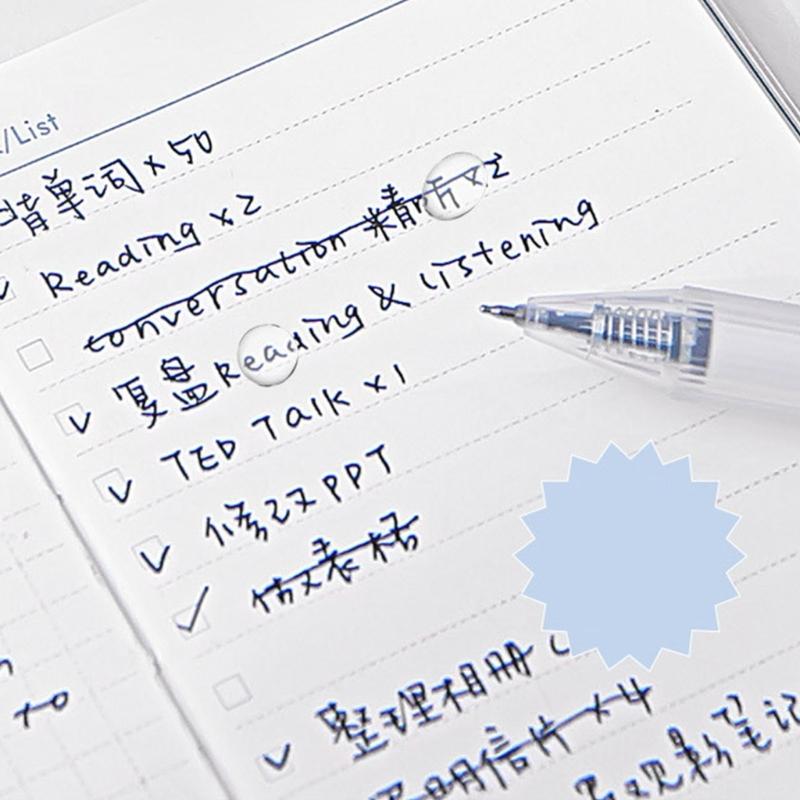 /List
背单词 x 50
Reading x 2
conversation 精听 x 2
复盘 Reading & Listening
TED Talk x 1
修改 PPT
做表格
整理相册
明信片 x 4
观影笔记
to